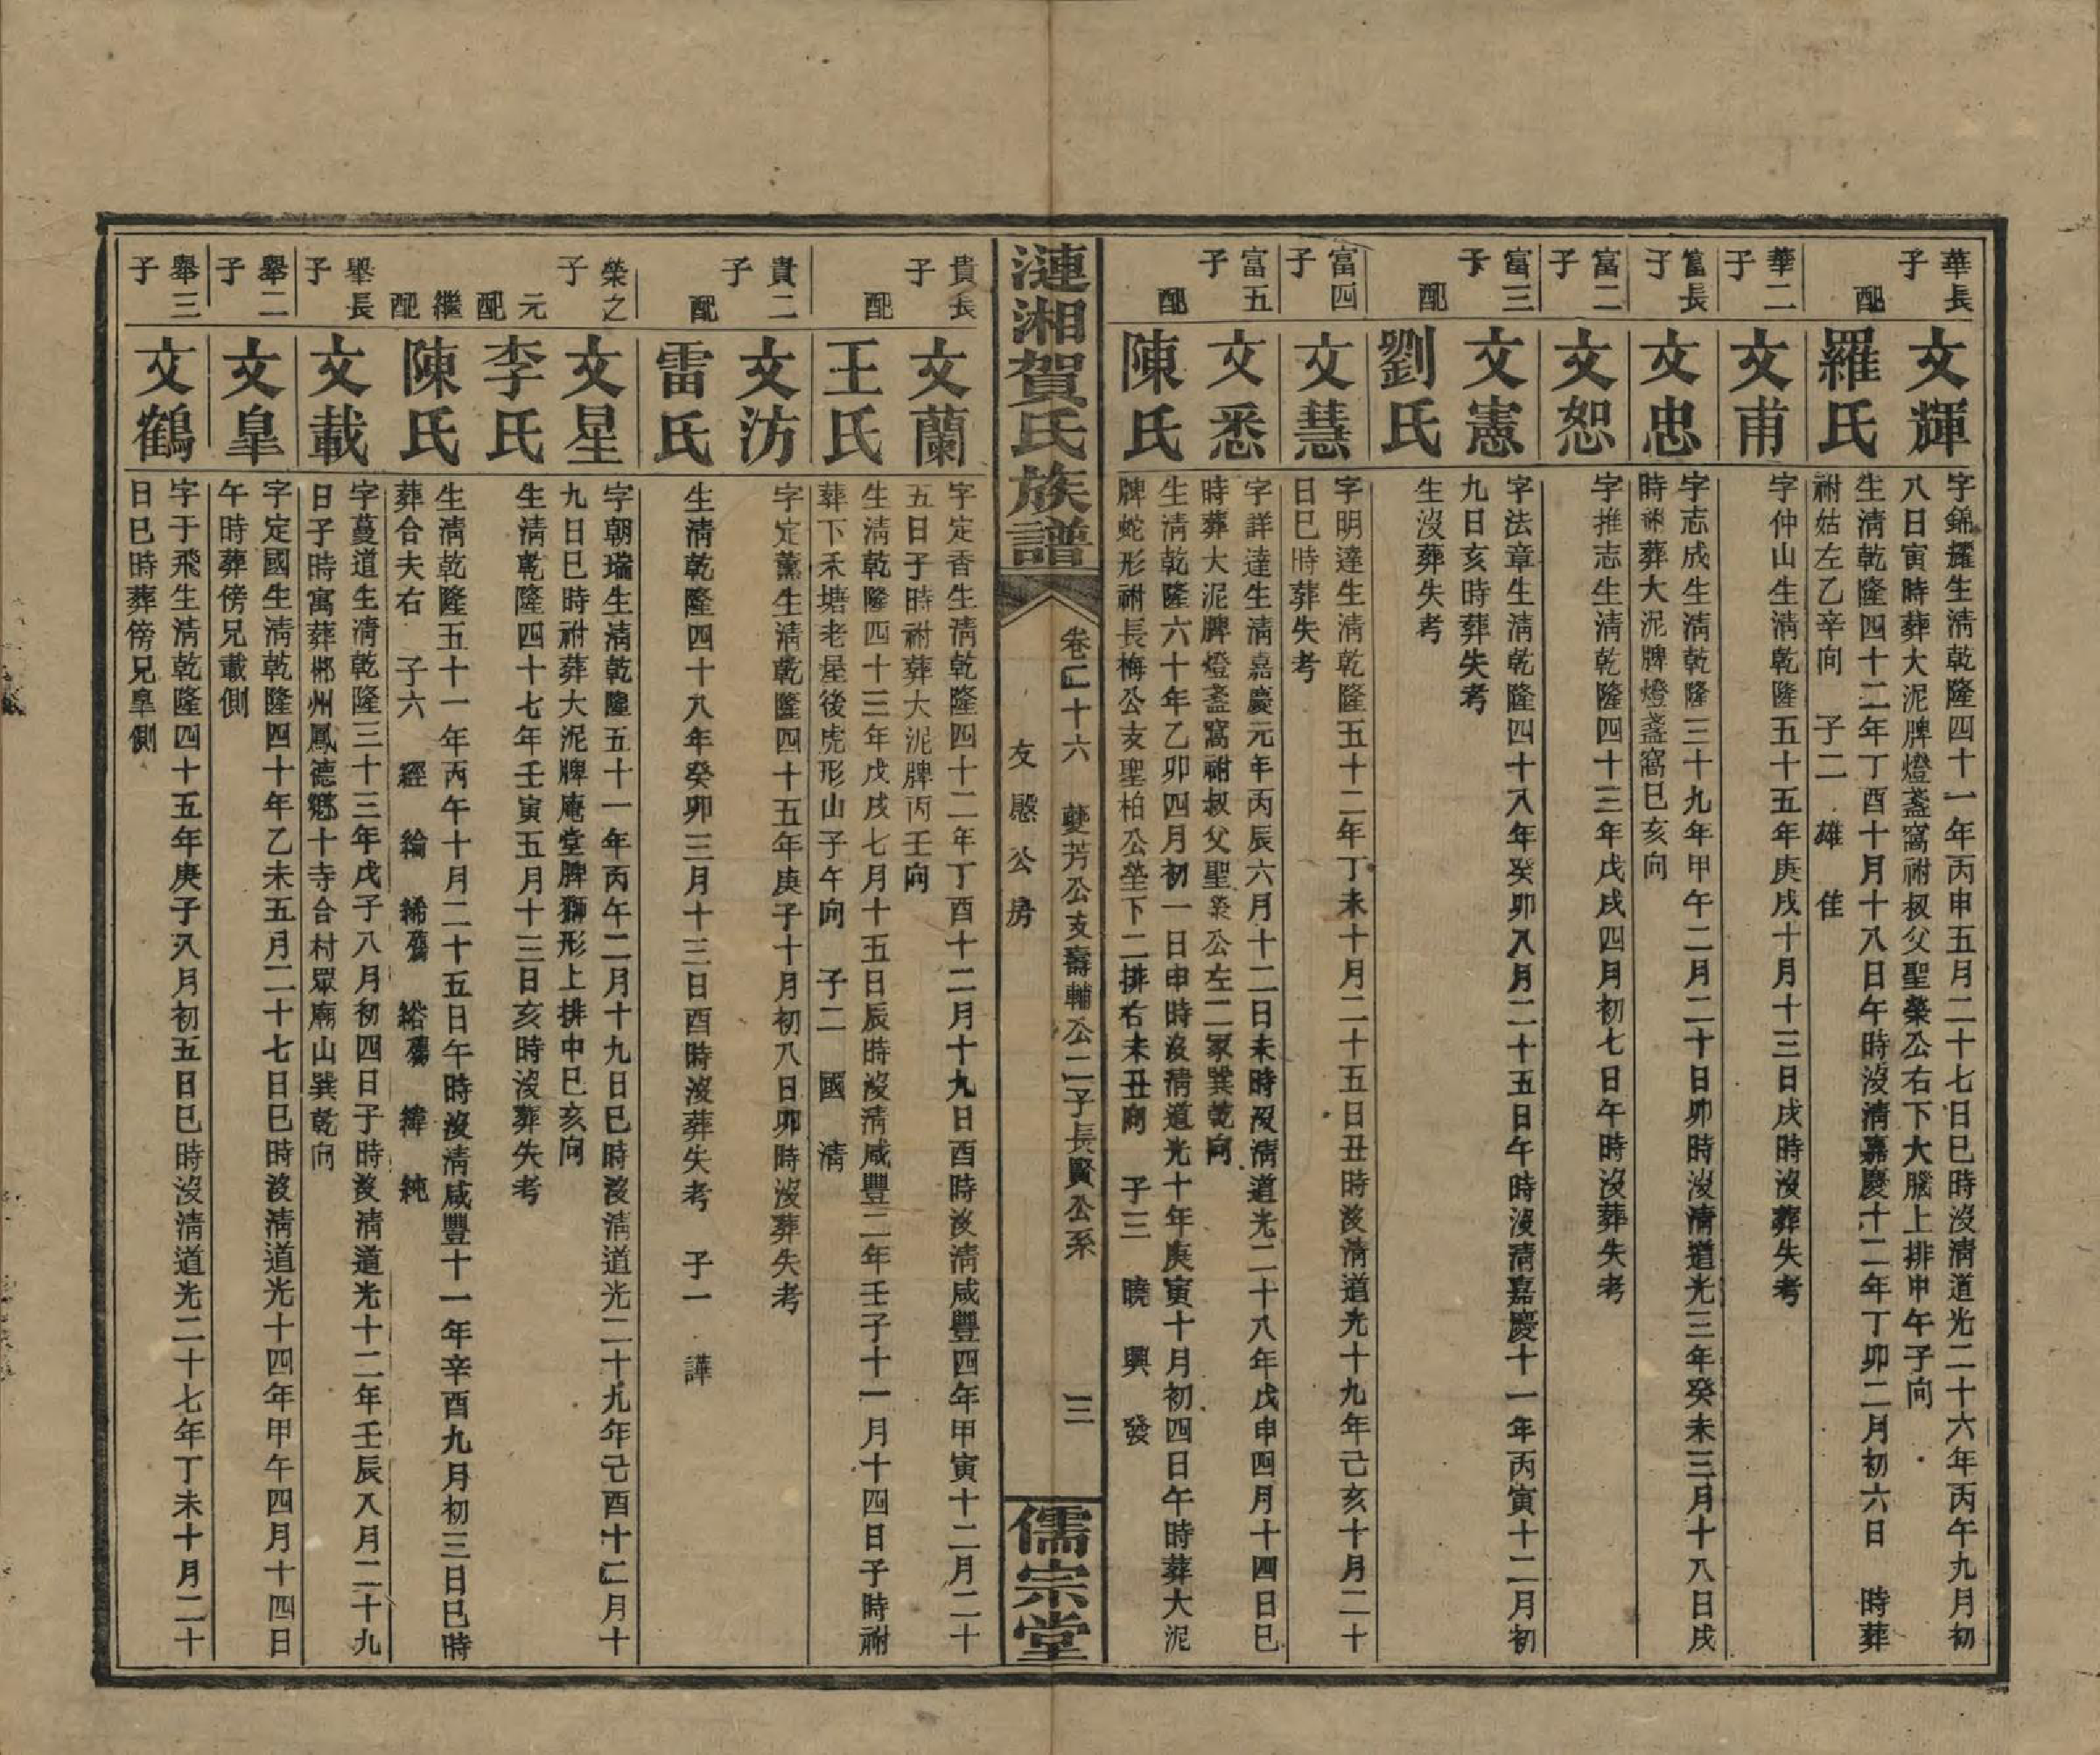 華長子
文輝
字錦耀生清乾隆四十一年丙申五月二十七日巳時沒清道光二十六年丙午九月初
八日寅時葬大泥牌燈盞窩祔叔父聖榮公右下大塍上排申午子向
配
羅氏
生清乾隆四十二年丁酉十月十八日午時沒清嘉慶十二年丁卯二月初六日 時葬
祔姑左乙辛向 子二 雄 佳
華二子
文甫
字仲山生清乾隆五十五年庚戌十月十三日戌時沒葬失考
富長子
文忠
字志成生清乾隆三十九年甲午二月二十日卯時沒清道光三年癸未三月十八日戌
時祔葬大泥牌燈盞窩巳亥向
富二子
文恕
字推志生清乾隆四十三年戊戌四月初七日午時沒葬失考
富三子
文憲
字法章生清乾隆四十八年癸卯八月二十五日午時沒清嘉慶十一年丙寅十二月初
九日亥時葬失考
配
劉氏
生沒葬失考
富四子
文慧
字明達生清乾隆五十二年丁未十月二十五日丑時沒清道光十九年己亥十月二十
日巳時葬失考
富五子
文悉
字詳達生清嘉慶元年丙辰六月十二日未時沒清道光二十八年戊申四月十四日巳
時葬大泥牌燈盞窩祔叔父聖榮公左二冢巽乾向
配
陳氏
生清乾隆六十年乙卯四月初一日申時沒清道光十年庚寅十月初四日午時葬大泥
牌蛇形祔長梅公支聖柏公塋下二排右未丑向 子三 曉 興 發
漣湘賀氏族譜
卷二十六 夔芳公支壽輔公二子長賢公系
友慇公房
三
儒宗堂
貴長子
文蘭
字定香生清乾隆四十二年丁酉十二月十九日酉時沒清咸豐四年甲寅十二月二十
五日子時祔葬大泥牌丙壬向
配
王氏
生清乾隆四十三年戊戌七月十五日辰時沒清咸豐二年壬子十一月十四日子時祔
葬下禾塘老屋後虎形山子午向 子二 國 清
貴二子
文汸
字定薰生清乾隆四十五年庚子十月初八日卯時沒葬失考
配
雷氏
生清乾隆四十八年癸卯三月十三日酉時沒葬失考 子一 譁
榮之子
文星
字朝瑞生清乾隆五十一年丙午二月十九日巳時沒清道光二十九年己酉十二月十
九日巳時祔葬大泥牌庵堂脾獅形上排中巳亥向
元配
李氏
生清乾隆四十七年壬寅五月十三日亥時沒葬失考
繼配
陳氏
生清乾隆五十一年丙午十月二十五日午時沒清咸豐十一年辛酉九月初三日巳時
葬合夫右 子六 經 綸 絺殤 綌殤 緯 純
舉長子
文載
字蔓道生清乾隆三十三年戊子八月初四日子時沒清道光十二年壬辰八月二十九
日子時寓葬郴州鳳德鄉十寺合村眾廟山巽乾向
舉二子
文皐
字定國生清乾隆四十年乙未五月二十七日巳時沒清道光十四年甲午四月十四日
午時葬傍兄載側
舉三子
文鶴
字于飛生清乾隆四十五年庚子八月初五日巳時沒清道光二十七年丁未十月二十
日巳時葬傍兄皐側